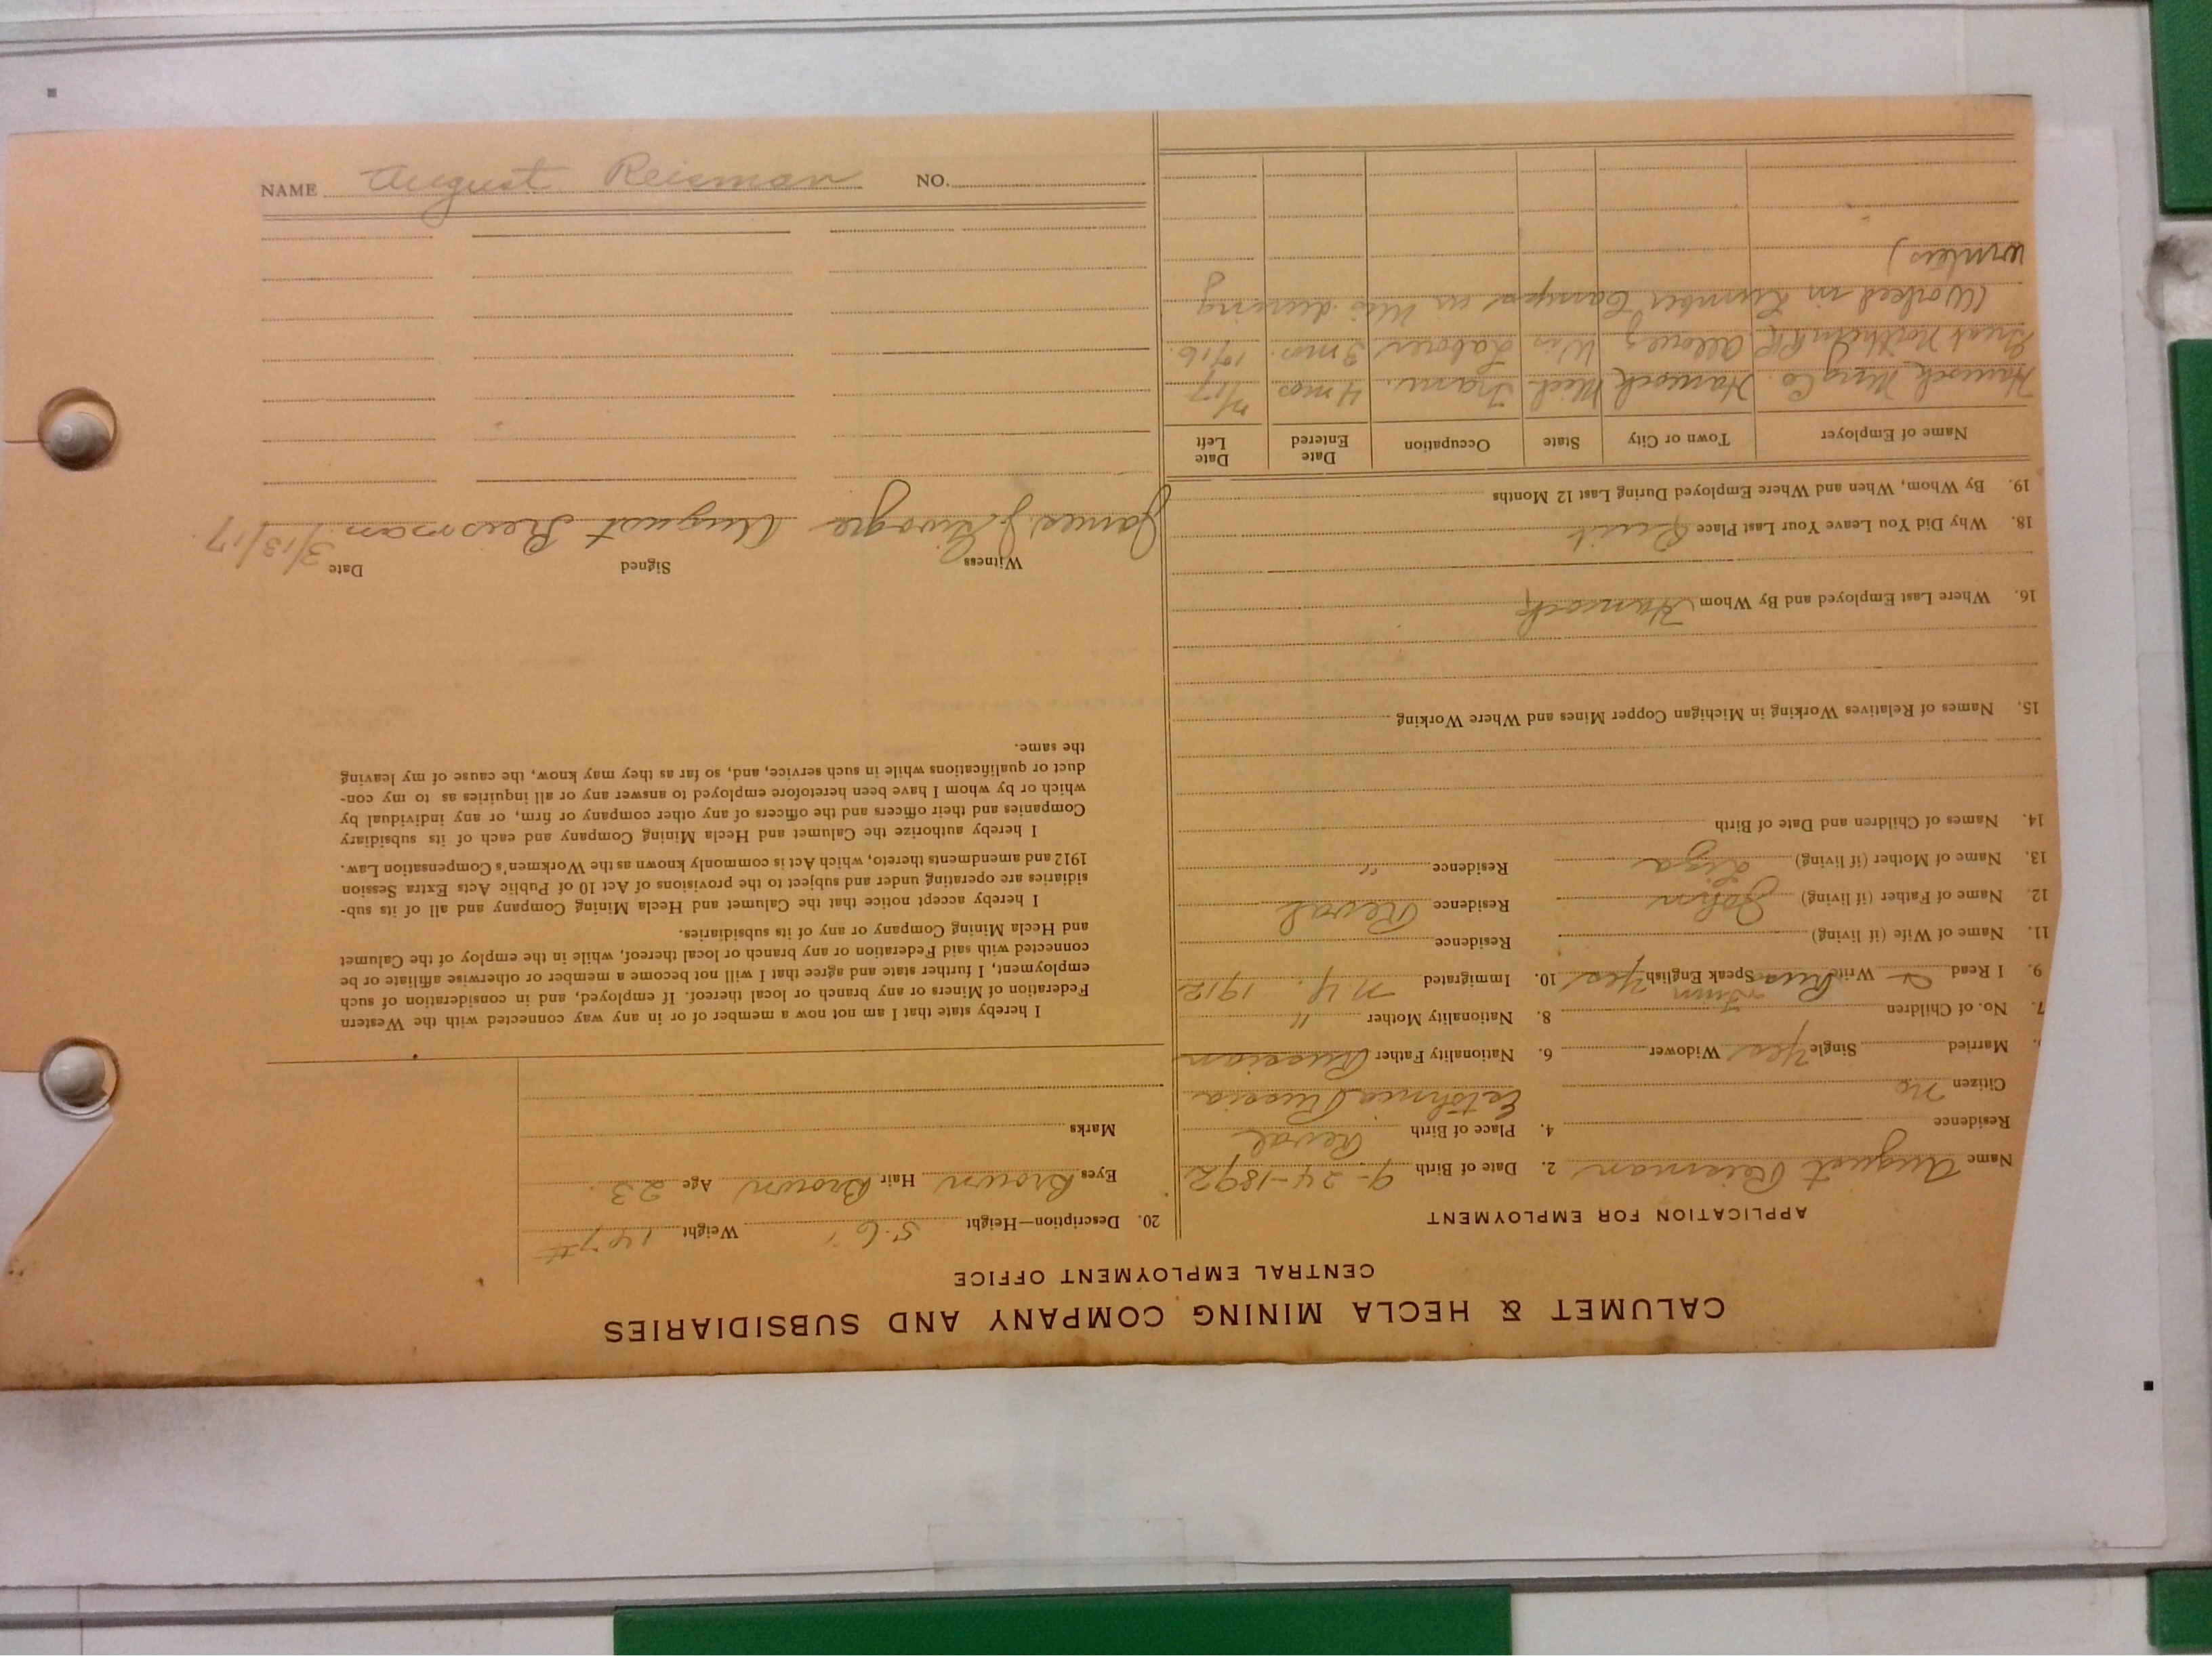 CALUMET & HECLA MINING COMPANY AND SUBSIDIARIES
CENTRAL EMPLOYMENT OFFICE
APPLICATION FOR EMPLOYMENT
Name August Reisman 2. Date of Birth 9-24-1892
Residence 4. Place of Birth Reval
Esthonia Russia
Citizen No
Married Single Yes Widower 6. Nationality Father Russian
7. No. of Children 8. Nationality Mother "
9. I Read & Write Russ Finn Speak English Yes 10. Immigrated N.Y. 1912
11. Name of Wife (if living) Residence
12. Name of Father (if living) John Residence Reval
13. Name of Mother (if living) Liza Residence "
14. Names of Children and Date of Birth
15. Names of Relatives Working in Michigan Copper Mines and Where Working
16. Where Last Employed and By Whom Hancock
18. Why Did You Leave Your Last Place Quit
19. By Whom, When and Where Employed During Last 12 Months
Name of Employer Town or City State Occupation Date Entered Date Left
Hancock Mng Co. Hancock Mich Tram. 4 mos
Great Northern RR Allouez Wis Laborer 3 mos. 1916.
(Worked in Lumber Camps in during
winters)
20. Description—Height 5-6 Weight 147#
Eyes Brown Hair Brown Age 23.
Marks
I hereby state that I am not now a member of or in any way connected with the Western
Federation of Miners or any branch or local thereof. If employed, and in consideration of such
employment, I further state and agree that I will not become a member or otherwise affiliate or be
connected with said Federation or any branch or local thereof, while in the employ of the Calumet
and Hecla Mining Company or any of its subsidiaries.
I hereby accept notice that the Calumet and Hecla Mining Company and all of its sub-
sidiaries are operating under and subject to the provisions of Act 10 of Public Acts Extra Session
1912 and amendments thereto, which Act is commonly known as the Workmen's Compensation Law.
I hereby authorize the Calumet and Hecla Mining Company and each of its subsidiary
Companies and their officers and the officers of any other company or firm, or any individual by
which or by whom I have been heretofore employed to answer any or all inquiries as to my con-
duct or qualifications while in such service, and, so far as they may know, the cause of my leaving
the same.
Witness Signed Date 3/13/17
James J August Reisman
NAME August Reisman NO.